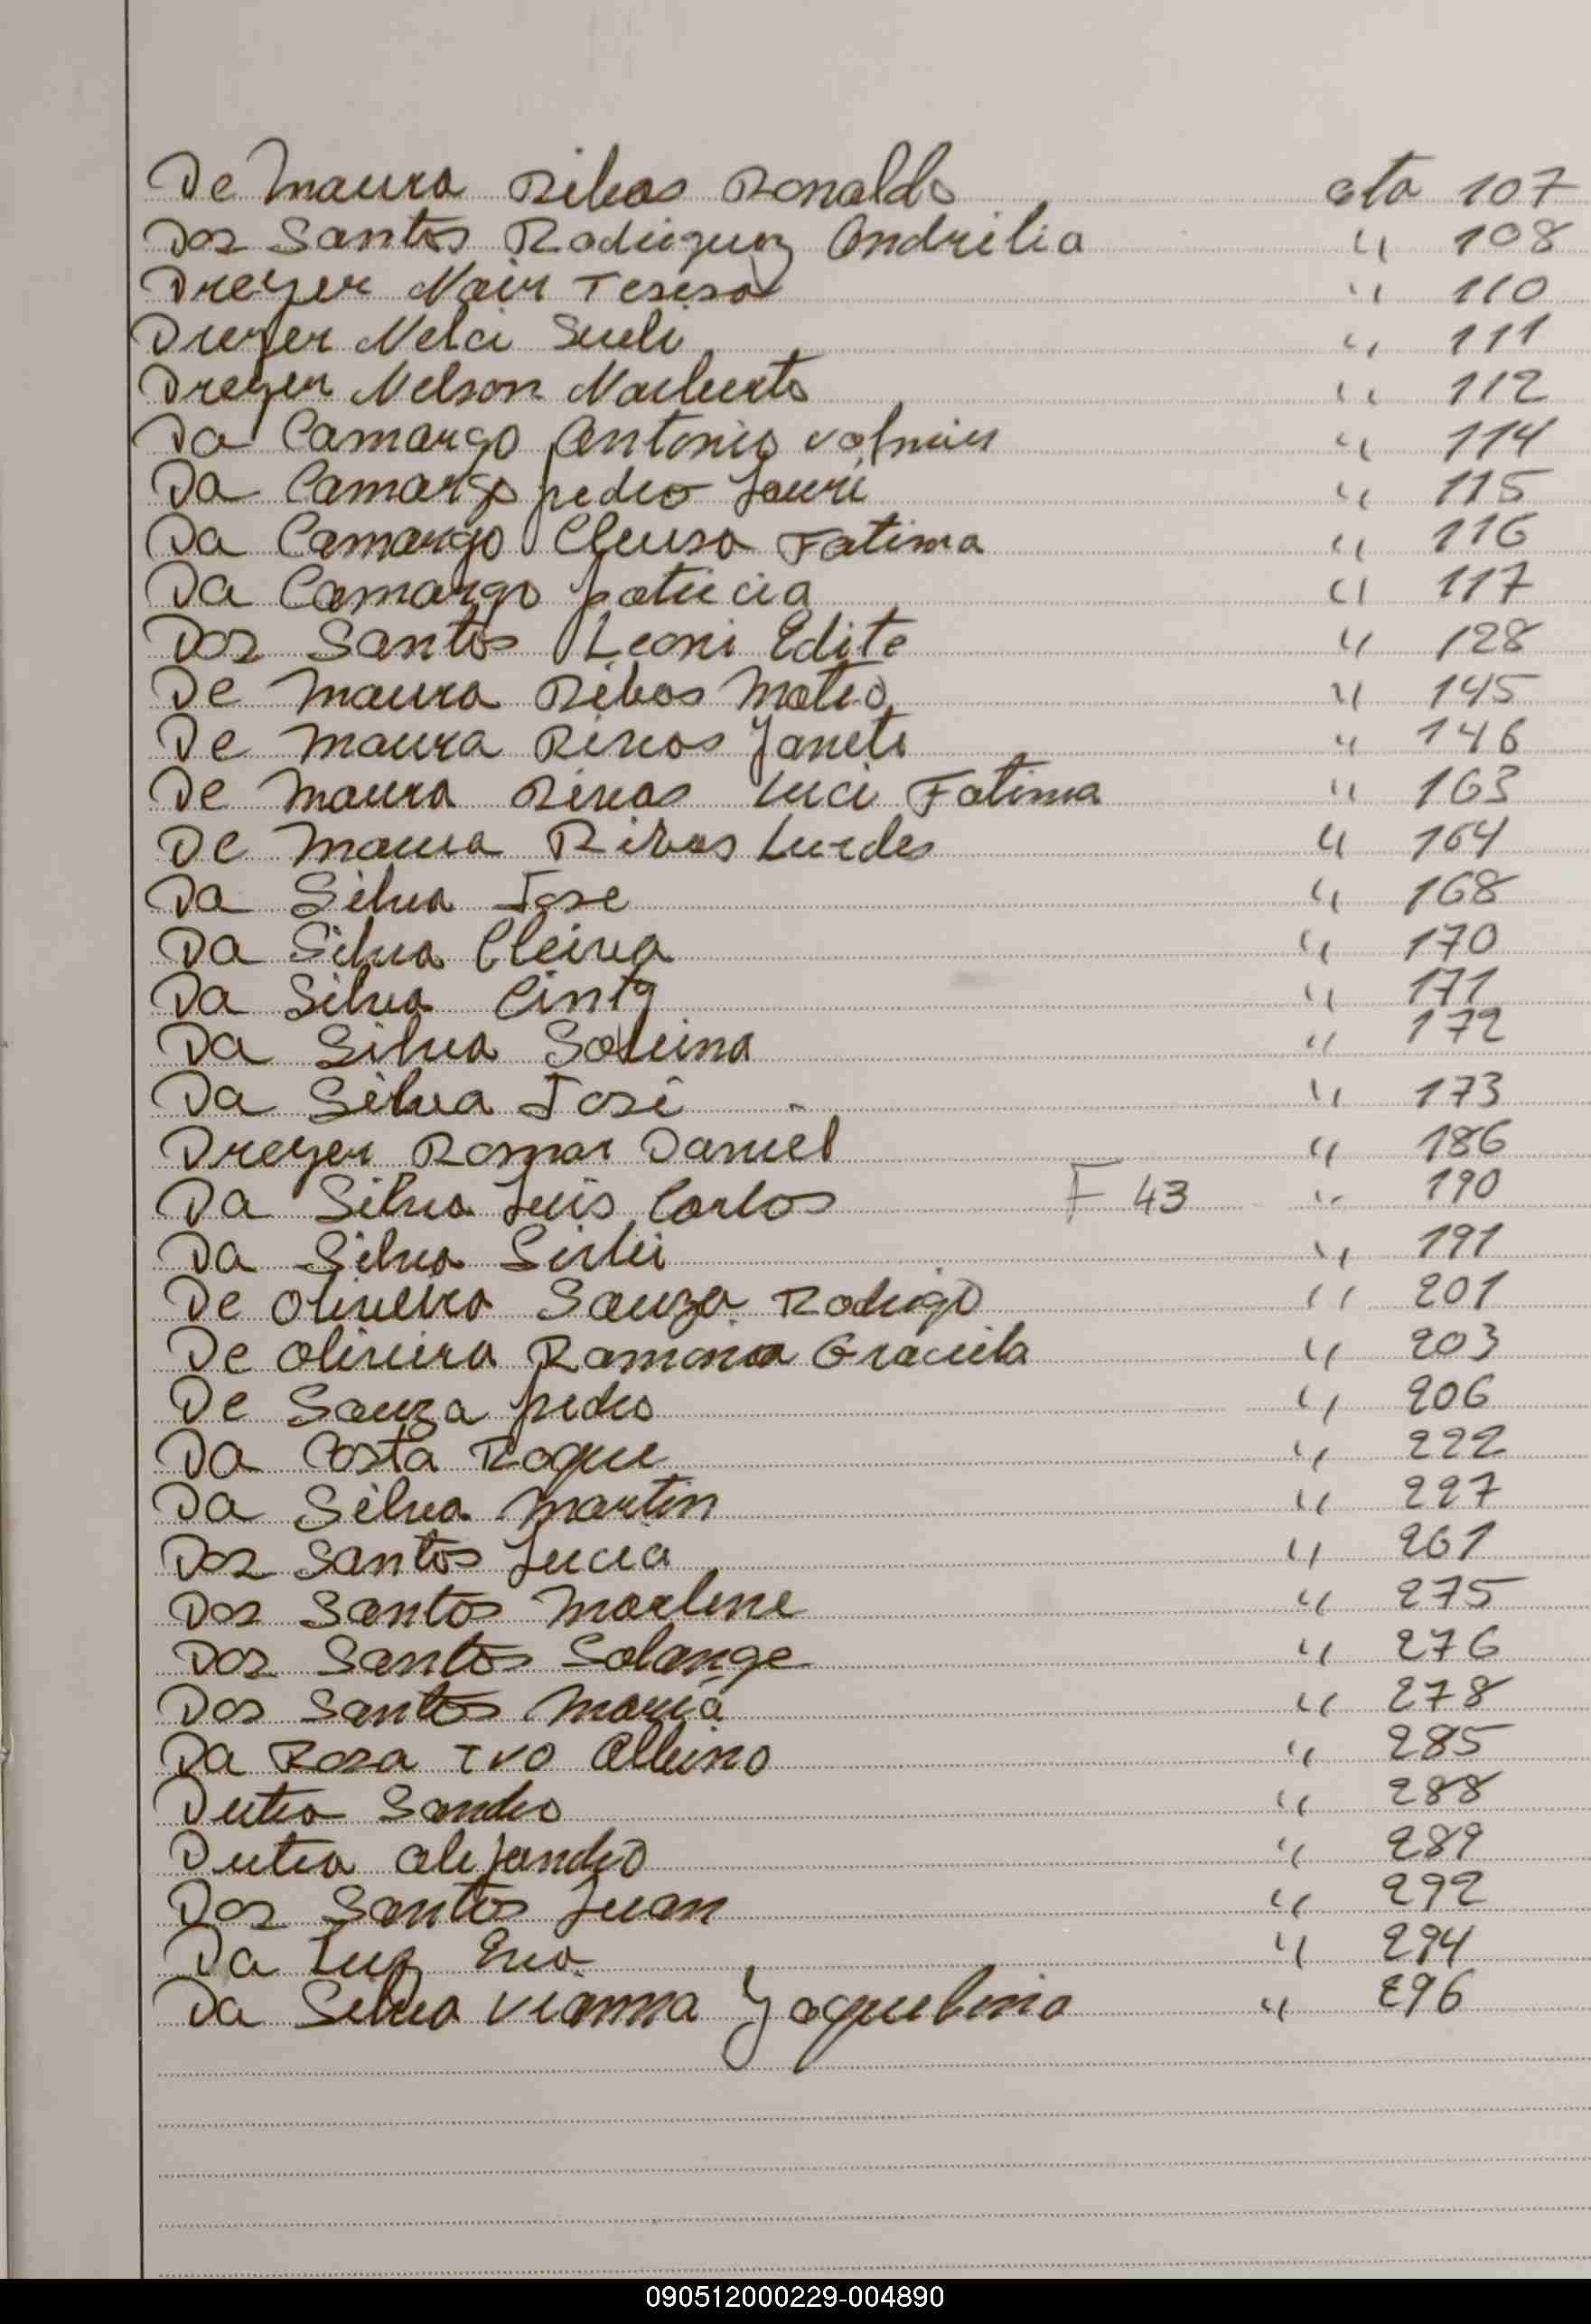 De Maura Ribas Ronaldo ata 107
Dos Santos Rodriguez Andrilia " 108
Dreyer Nair Teresa " 110
Dreyer Nelci Sueli " 111
Dreyer Nelson Norberto " 112
Da Camargo Antonio Volmir " 114
Da Camargo Pedro Jauri " 115
Da Camargo Cleusa Fatima " 116
Da Camargo Patricia " 117
Dos Santos Leoni Edite " 128
De Maura Ribas Mateo " 145
De Maura Rivas Janete " 146
De Maura Rivas Luci Fatima " 163
De Maura Ribas Lurdes " 164
Da Silva Jose " 168
Da Silva " 170
Da Silva " 171
Da Silva " 172
Da Silva José " 173
Dreyer Daniel " 186
Da Silva Luis Carlos F 43 " 190
Da Silva Sirlei " 191
De Oliveira Souza Rodrigo " 201
De Oliveira Ramona Graciela " 203
De Souza Pedro " 206
Da Costa Roque " 222
Da Silva Martin " 227
Dos Santos Lucia " 261
Dos Santos Marlene " 275
Dos Santos Solange " 276
Dos Santos Maria " 278
Da Rosa Ivo Albino " 285
Dutra Sandro " 288
Dutra Alejandro " 289
Dos Santos Juan " 292
Da Luz " 294
Da Silva Vianna Yaquelina " 296
090512000229-004890